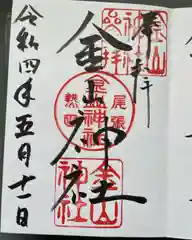 奉拝
金山神社
尾張
熱田
金山神社
令和四年五月十一日